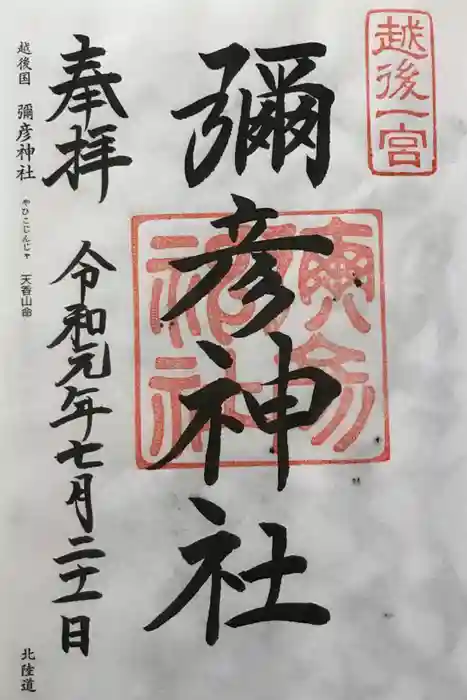 越後一宮
彌彦神社
彌彦神社
奉拝
令和元年七月二十一日
越後国 彌彦神社 やひこじんじゃ 天香山命
北陸道